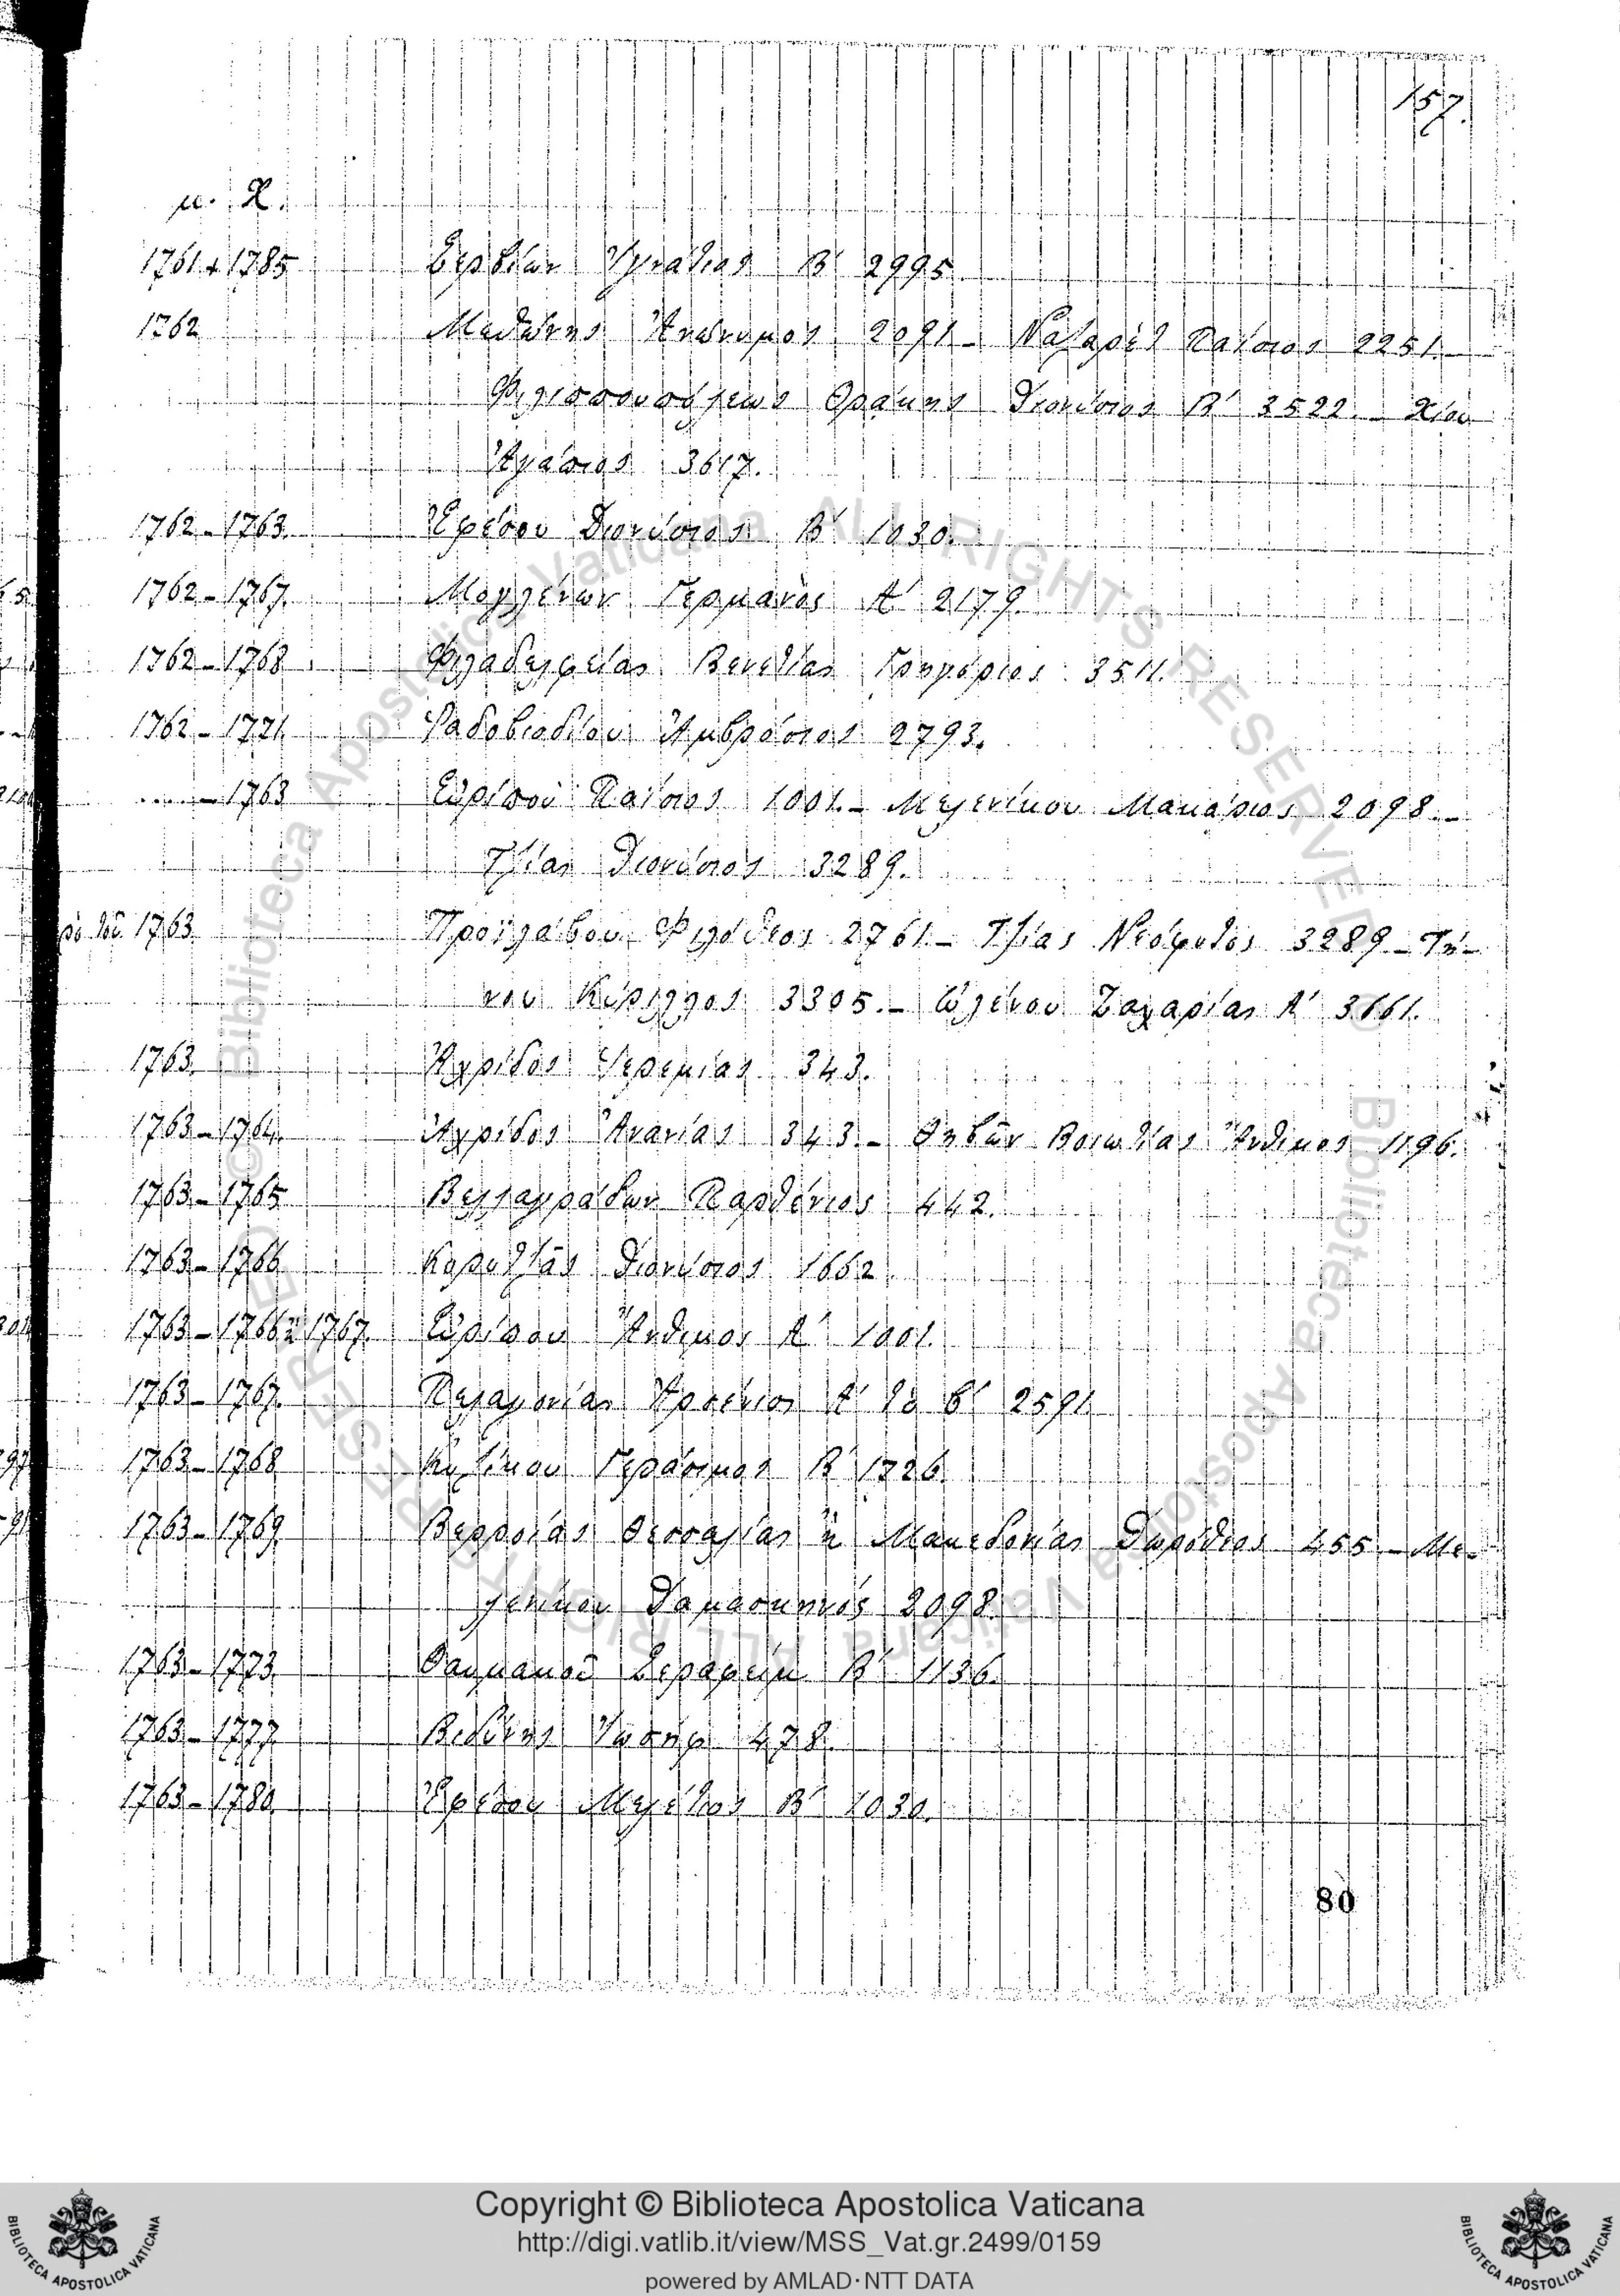 157.
μ. Χ.
1761 + 1785 Σερβίων Ἰγνάτιος Β' 2995
1762 Μεδείας Ἄνθιμος 2091 – Ναζαρὲτ Παΐσιος 2251 –
Φιλιππουπόλεως Θρᾴκης Διονύσιος Β' 3522. – Χίου
Ἀγάπιος 3617.
1762 – 1763. Ἐφέσου Διονύσιος Β' 1030.
1762 – 1767. Μογλένων Γερμανὸς Α' 2179
1762 – 1768. Φιλαδελφείας Βενετίας Γρηγόριος 3511.
1762 – 1771 Ῥαδοβισδίου Ἀμβρόσιος 2793.
.... – 1763 Εὐρίπου Παΐσιος 1001. – Μελενίκου Μακάριος 2098. –
Τζίας Διονύσιος 3289.
πρὸ τοῦ 1763 Προϊλάβου Φιλόθεος 2761 – Τζίας Νεόφυτος 3289 – Τή-
νου Κύριλλος 3305. – Ὠλένου Ζαχαρίας Α' 3661.
1763. Ἀχρίδος Ἱερεμίας 343.
1763 – 1764. Ἀχρίδος Ἀνανίας 343. – Θηβῶν Βοιωτίας Ἄνθιμος 1196.
1763 – 1765 Βελλαγράδων Παρθένιος 442.
1763 – 1766 Κορυτζᾶς Διονύσιος 1662.
1763 – 1766 ἢ 1767. Εὐρίπου Ἄνθιμος Α' 1001.
1763 – 1767. Πελαγονίας Ἀρσένιος Α' τὸ β' 2591
1763 – 1768 Κυζίκου Γεράσιμος Β' 1726.
1763 – 1769. Βερροίας Θεσσαλίας ἢ Μακεδονίας Δωρόθεος 455 – Με-
λενίκου Δαμασκηνός 2098.
1763 – 1773 Θαυμακοῦ Σεραφείμ Β' 1136.
1763 – 1777. Βιδύνης Ἰωσήφ 478.
1763 – 1780. Ἐφέσου Μελέτιος Β' 1030.
80
Copyright © Biblioteca Apostolica Vaticana
http://digi.vatlib.it/view/MSS_Vat.gr.2499/0159
powered by AMLAD·NTT DATA